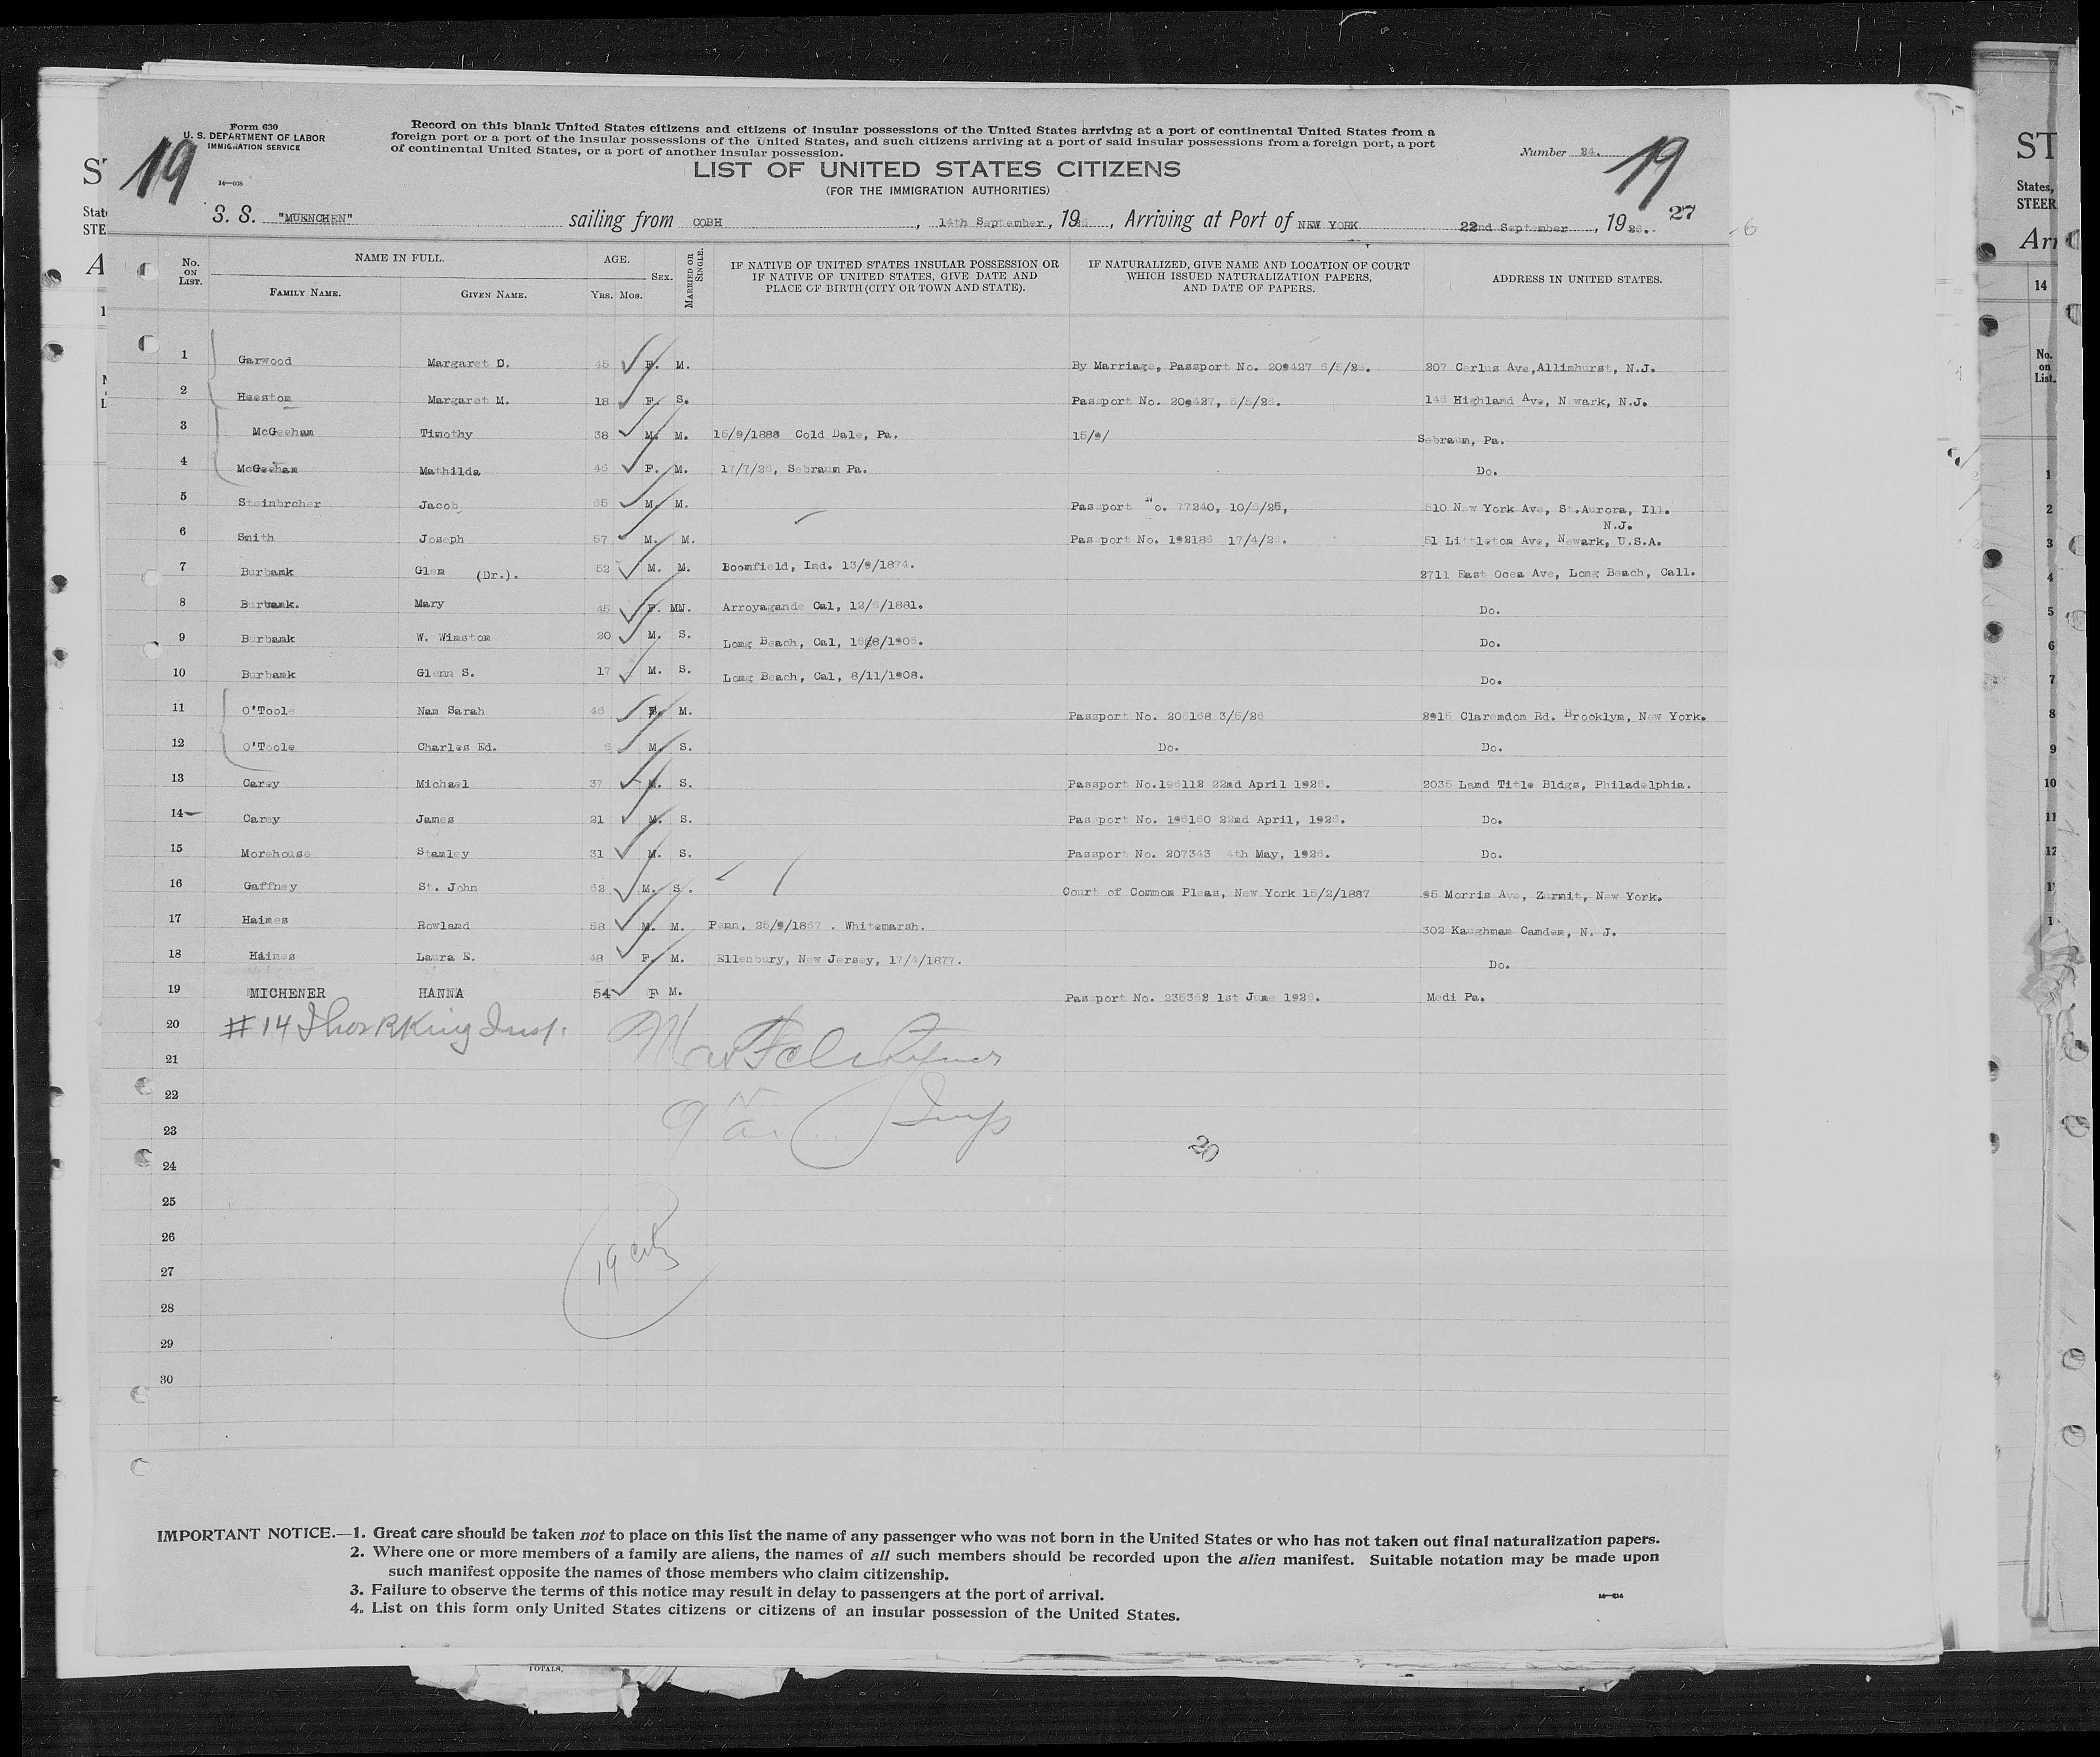 Form 630
U. S. DEPARTMENT OF LABOR
IMMIGRATION SERVICE
Record on this blank United States citizens and citizens of insular possessions of the United States arriving at a port of continental United States from a
foreign port or a port of the insular possessions of the United States, and such citizens arriving at a port of said insular possessions from a foreign port, a port
of continental United States, or a port of another insular possession.
Number 24.
19
19
27
LIST OF UNITED STATES CITIZENS
(FOR THE IMMIGRATION AUTHORITIES)
S. S. "MUENCHEN" sailing from COBH, 14th September, 1926, Arriving at Port of NEW YORK 22nd September, 1926.
No. ON LIST. NAME IN FULL. FAMILY NAME. GIVEN NAME. AGE. YRS. MOS. SEX. MARRIED OR SINGLE. IF NATIVE OF UNITED STATES INSULAR POSSESSION OR IF NATIVE OF UNITED STATES, GIVE DATE AND PLACE OF BIRTH (CITY OR TOWN AND STATE). IF NATURALIZED, GIVE NAME AND LOCATION OF COURT WHICH ISSUED NATURALIZATION PAPERS, AND DATE OF PAPERS. ADDRESS IN UNITED STATES.
1 Garwood Margaret C. 45 F. M. By Marriage, Passport No. 209427 6/5/26. 207 Carlus Ave, Allimhurst, N.J.
2 Heestom Margaret M. 18 F. S. Passport No. 209427, 6/5/26. 146 Highland Ave, Newark, N.J.
3 McGeeham Timothy 38 M. M. 15/9/1888 Cold Dale, Pa. 15/9/ Sebraum, Pa.
4 McGeeham Mathilda 46 F. M. 17/7/26, Sebraum Pa. Do.
5 Steinbrcher Jacob 65 M. M. Passport No. 77240, 10/6/25, 510 New York Ave, St.Aurora, Ill.
6 Smith Joseph 57 M. M. Passport No. 192186 17/4/26. 51 Littleton Ave, Newark, U.S.A. N.J.
7 Burbamk Glen (Dr.). 52 M. M. Boomfield, Ind. 13/9/1874. 2711 East Ocea Ave, Long Beach, Call.
8 Burbamk. Mary 45 F. M. Arroyagande Cal, 12/6/1881. Do.
9 Burbamk W. Winstom 20 M. S. Long Beach, Cal, 16/8/1906. Do.
10 Burbamk Glenn S. 17 M. S. Long Beach, Cal, 8/11/1908. Do.
11 O'Toole Nam Sarah 46 F. M. Passport No. 206168 3/5/26 2915 Claremdom Rd. Brooklym, New York.
12 O'Toole Charles Ed. 6 M. S. Do. Do.
13 Carey Michael 37 M. S. Passport No.196112 22md April 1926. 2035 Land Title Bldgs, Philadelphia.
14 Carey James 21 M. S. Passport No. 196160 22md April, 1926. Do.
15 Morehouse Stamley 31 M. S. Passport No. 207343 4th May, 1926. Do.
16 Gaffney St. John 62 M. S. Court of Common Pleas, New York 15/2/1887 95 Morris Ave, Zurmit, New York.
17 Haimes Rowland 58 M. M. Penn, 25/9/1867 . Whitemarsh. 302 Kaughmam Camdem, N. J.
18 Haimes Laura E. 48 F. M. Ellenbury, New Jersey, 17/4/1877. Do.
19 MICHENER HANNA 54 F M. Passport No. 235362 1st June 1926. Medi Pa.
20 #14 Thos R King Insp.
21
22
23 Insp
20
24
25
26
27 19 cits
28
29
30
IMPORTANT NOTICE.—1. Great care should be taken not to place on this list the name of any passenger who was not born in the United States or who has not taken out final naturalization papers.
2. Where one or more members of a family are aliens, the names of all such members should be recorded upon the alien manifest. Suitable notation may be made upon
such manifest opposite the names of those members who claim citizenship.
3. Failure to observe the terms of this notice may result in delay to passengers at the port of arrival.
4. List on this form only United States citizens or citizens of an insular possession of the United States.
TOTALS,
ST
States,
STEER
Arr
14
No. on List.
1
2
3
4
5
6
7
8
9
10
11
12